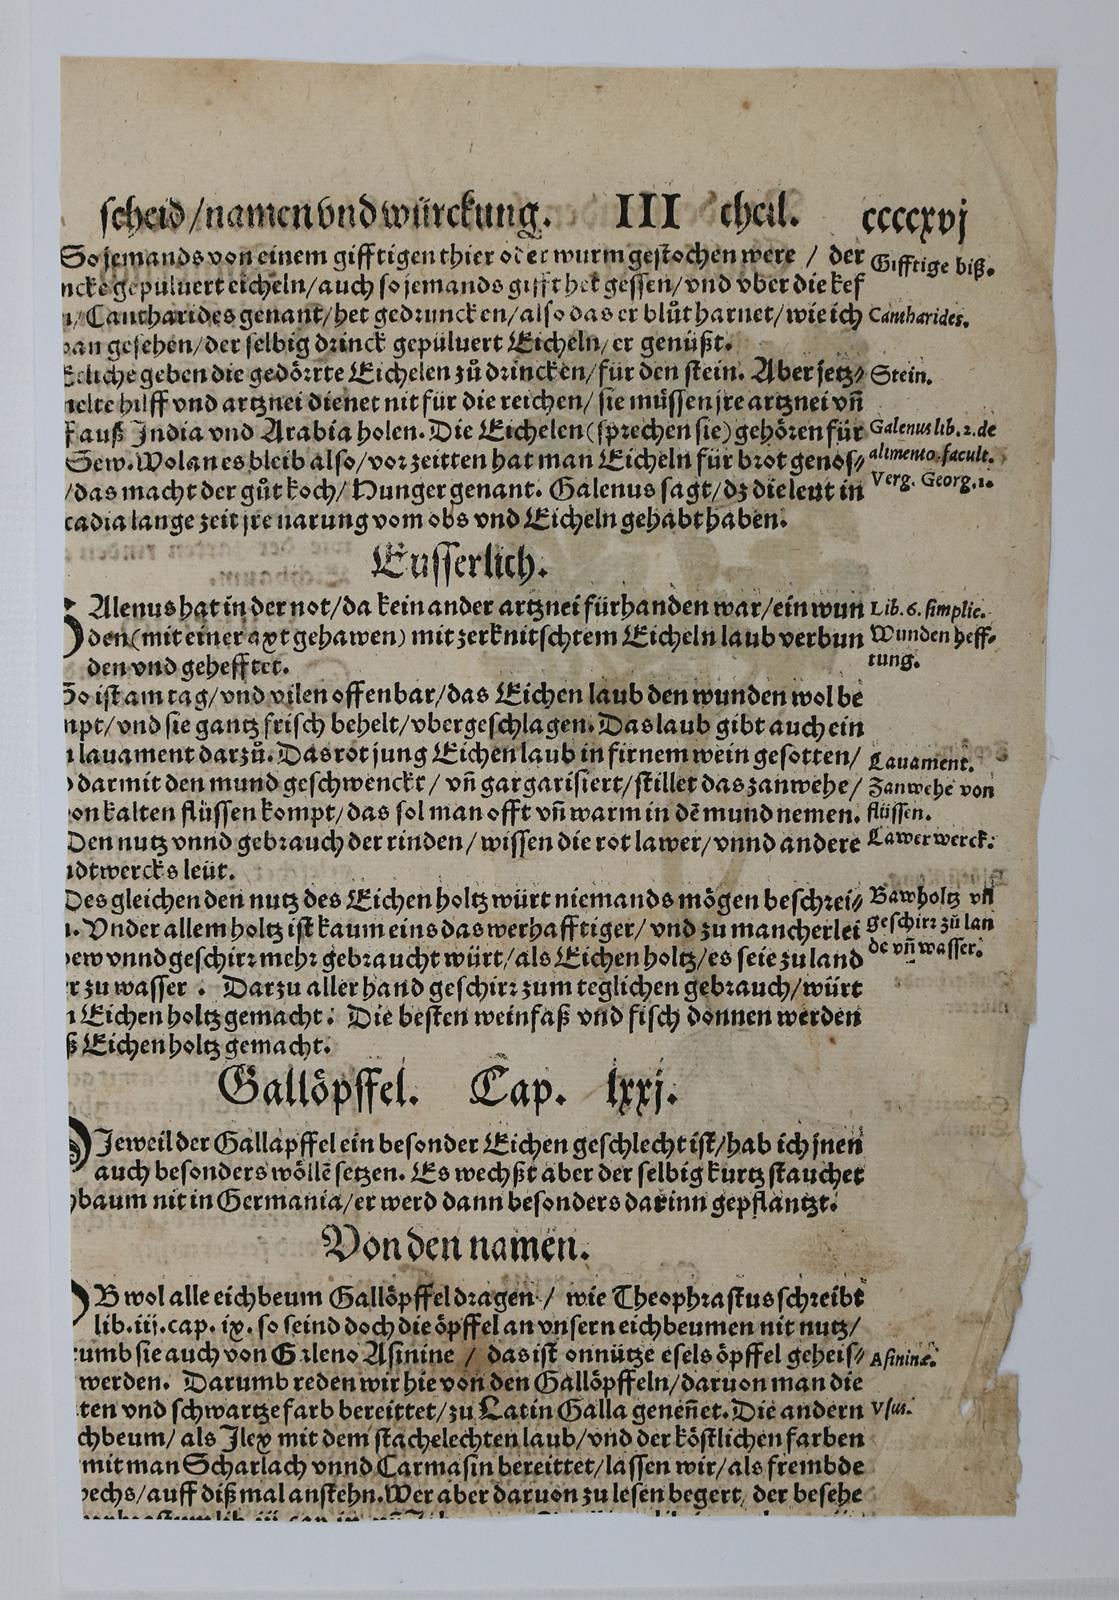 scheid/namen vnd würckung. III theil. ccccxvj
So jemands von einem gifftigen thier oder wurm gestochen were / der
Gifftige biß.
ncke gepuluert eicheln/auch so jemands gifft het gessen/vnd vber die kef
Cantharides genant/het gedruncken/also das er blůt harnet/wie ich
Cantharides.
an gesehen/der selbig drinck gepuluert Eicheln/er genüßt.
Etliche geben die gedörrte Eichelen zů drincken/für den stein. Aber jetz⸗
Stein.
melte hilff vnd artznei dienet nit für die reichen/sie müssen jre artznei vñ
auß India vnd Arabia holen. Die Eichelen(sprechen sie)gehören für
Galenus lib. 2. de
Sew. Wolan es bleib also/vor zeitten hat man Eicheln für brot genos⸗
alimento. facult.
/das macht der gůt koch/Hunger genant. Galenus sagt/dz die leut in
Verg. Georg. 1.
cadia lange zeit jre narung vom obs vnd Eicheln gehabt haben.
Eusserlich.
GAlenus hat in der not/da kein ander artznei fürhanden war/ein wun
Lib. 6. simplic.
den(mit einer axt gehawen) mit zerknitschtem Eicheln laub verbun
Wunden heff⸗
den vnd gehefftet.
tung.
So ist am tag/vnd vilen offenbar/das Eichen laub den wunden wol be
mpt/vnd sie gantz frisch behelt/vbergeschlagen. Das laub gibt auch ein
lauament darzů. Das rot jung Eichen laub in firnem wein gesotten/
Lauament.
darmit den mund geschwenckt/vñ gargarisiert/stillet das zanwehe/
Zanwehe von
von kalten flüssen kompt/das sol man offt vñ warm in dē mund nemen.
flüssen.
Den nutz vnnd gebrauch der rinden/wissen die rot lawer/vnnd andere
Lawer werck.
ndtwercks leüt.
Des gleichen den nutz des Eichen holtz würt niemands mögen beschrei⸗
Bawholtz vñ
n. Vnder allem holtz ist kaum eins das werhafftiger/vnd zu mancherlei
geschirr zů lan
bew vnnd geschirr mehr gebraucht würt/als Eichen holtz/es seie zu land
de vñ wasser.
r zu wasser . Darzu aller hand geschirr zum teglichen gebrauch/würt
n Eichen holtz gemacht. Die besten weinfaß vnd fisch donnen werden
ß Eichen holtz gemacht.
Gallöpffel. Cap. lxxj.
DJeweil der Gallapffel ein besonder Eichen geschlecht ist/hab ich jnen
auch besonders wöllē setzen. Es wechßt aber der selbig kurtz stauchet
hbaum nit in Germania/er werd dann besonders darinn gepflantzt.
Von den namen.
OB wol alle eichbeum Gallöpffel dragen / wie Theophrastus schreibt
lib. iij. cap. ix. so seind doch die öpffel an vnsern eichbeumen nit nutz/
rumb sie auch von Galeno Asinine / das ist onnütze esels öpffel geheis⸗
Asininæ.
werden. Darumb reden wir hie von den Gallöpffeln/daruon man die
ten vnd schwartze farb bereittet/zu Latin Galla geneñet. Die andern
Vsus.
chbeum/als Jlex mit dem stachelechten laub/vnd der köstlichen farben
mit man Scharlach vnnd Carmasin bereittet/lassen wir/als frembde
wechs/auff diß mal anstehn. Wer aber daruon zu lesen begert/der besehe